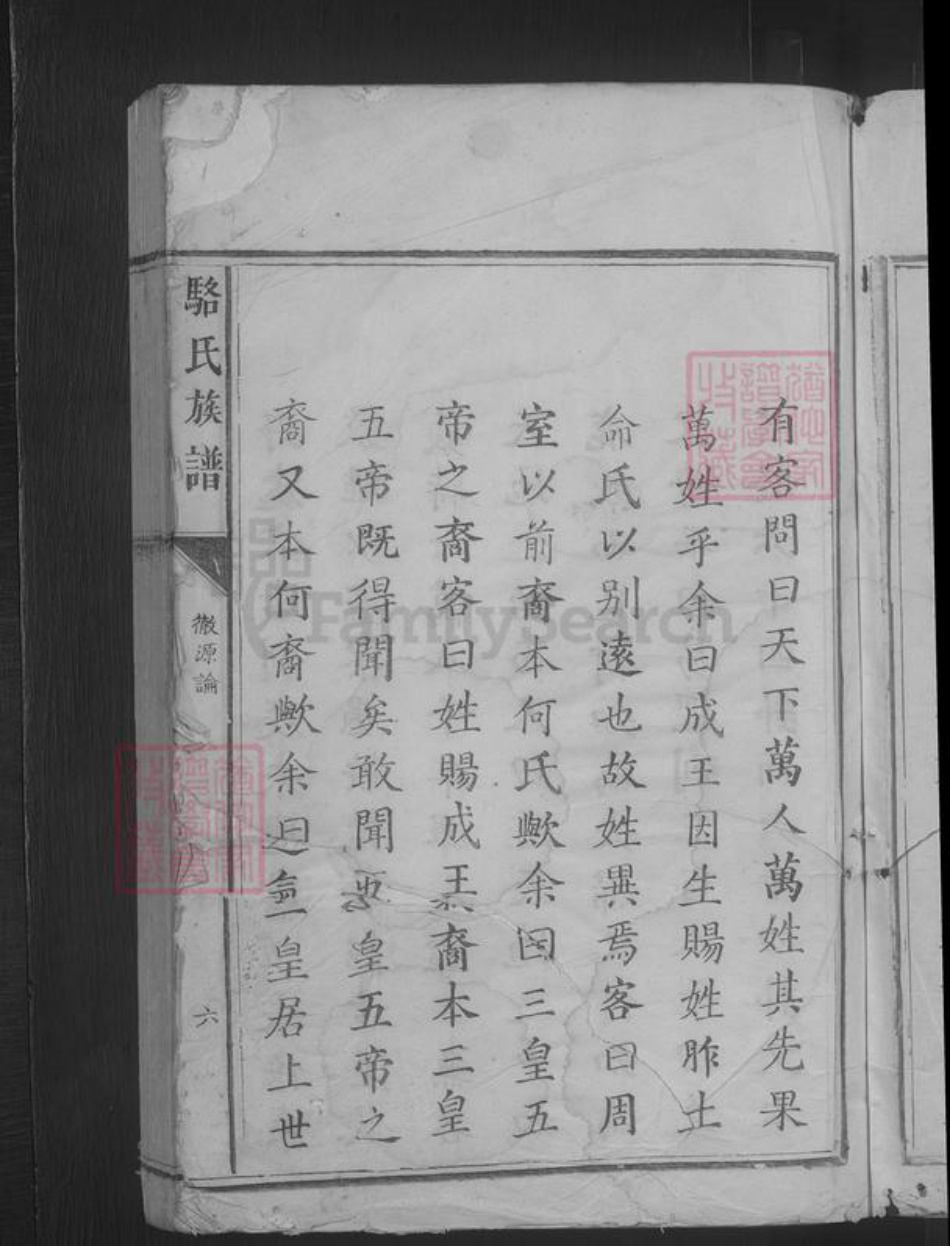 有客問曰天下萬人萬姓其先果
萬姓乎余曰成王因生賜姓胙土
命氏以別遠也故姓異焉客曰周
室以前裔本何氏歟余曰三皇五
帝之裔客曰姓賜成王裔本三皇
五帝既得聞矣敢聞三皇五帝之
裔又本何裔歟余曰三皇居上世
駱氏族譜
徵源論
六
FamilySearch